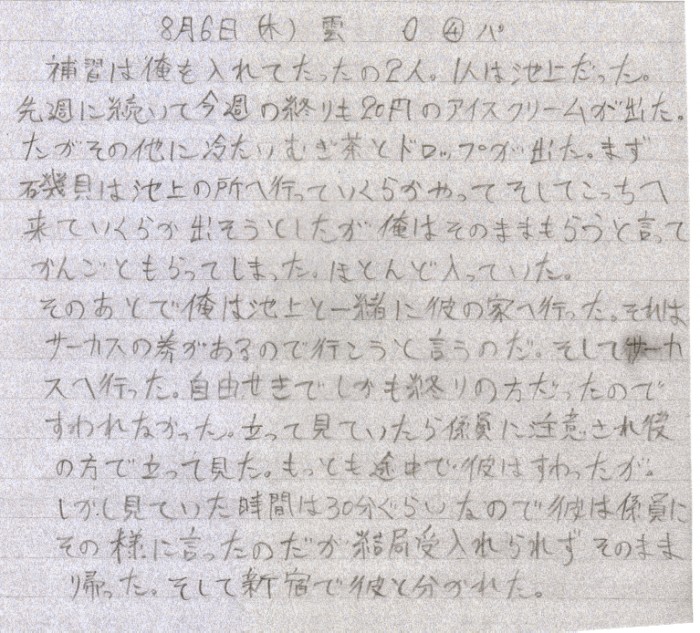 8月6日(木) 雲 0 ④ パ
補習は俺を入れてたったの2人。1人は池上だった。
先週に続いて今週の終りも20円のアイスクリームが出た。
だがその他に冷たいむぎ茶とドロップが出た。まず
磯貝は池上の所へ行っていくらかやってそしてこっちへ
来ていくらか出そうとしたが俺はそのままもらうと言って
かんごともらってしまった。ほとんど入っていた。
そのあとで俺は池上と一緒に彼の家へ行った。それは
サーカスの券があるので行こうと言うのだ。そしてサーカ
スへ行った。自由せきでしかも終りの方だったので
すわれなかった。立って見ていたら係員に注意され後
の方で立って見た。もっとも途中で彼はすわったが。
しかし見ていた時間は30分ぐらいなので彼は係員に
その様に言ったのだが結局受入れられずそのまま
帰った。そして新宿で彼と分かれた。